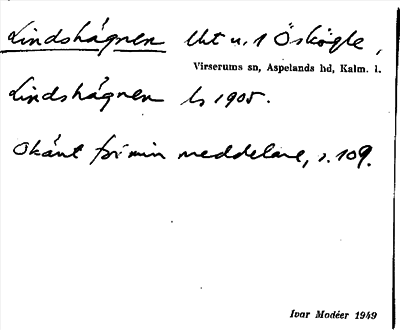 Lindshágnen lht u. 1 Öskögle,
Virserums sn, Aspelands hd, Kalm. l.
Lindshágnen Ls 1905.
Okänt för min meddelare, s. 109.
Ivar Modéer 1949